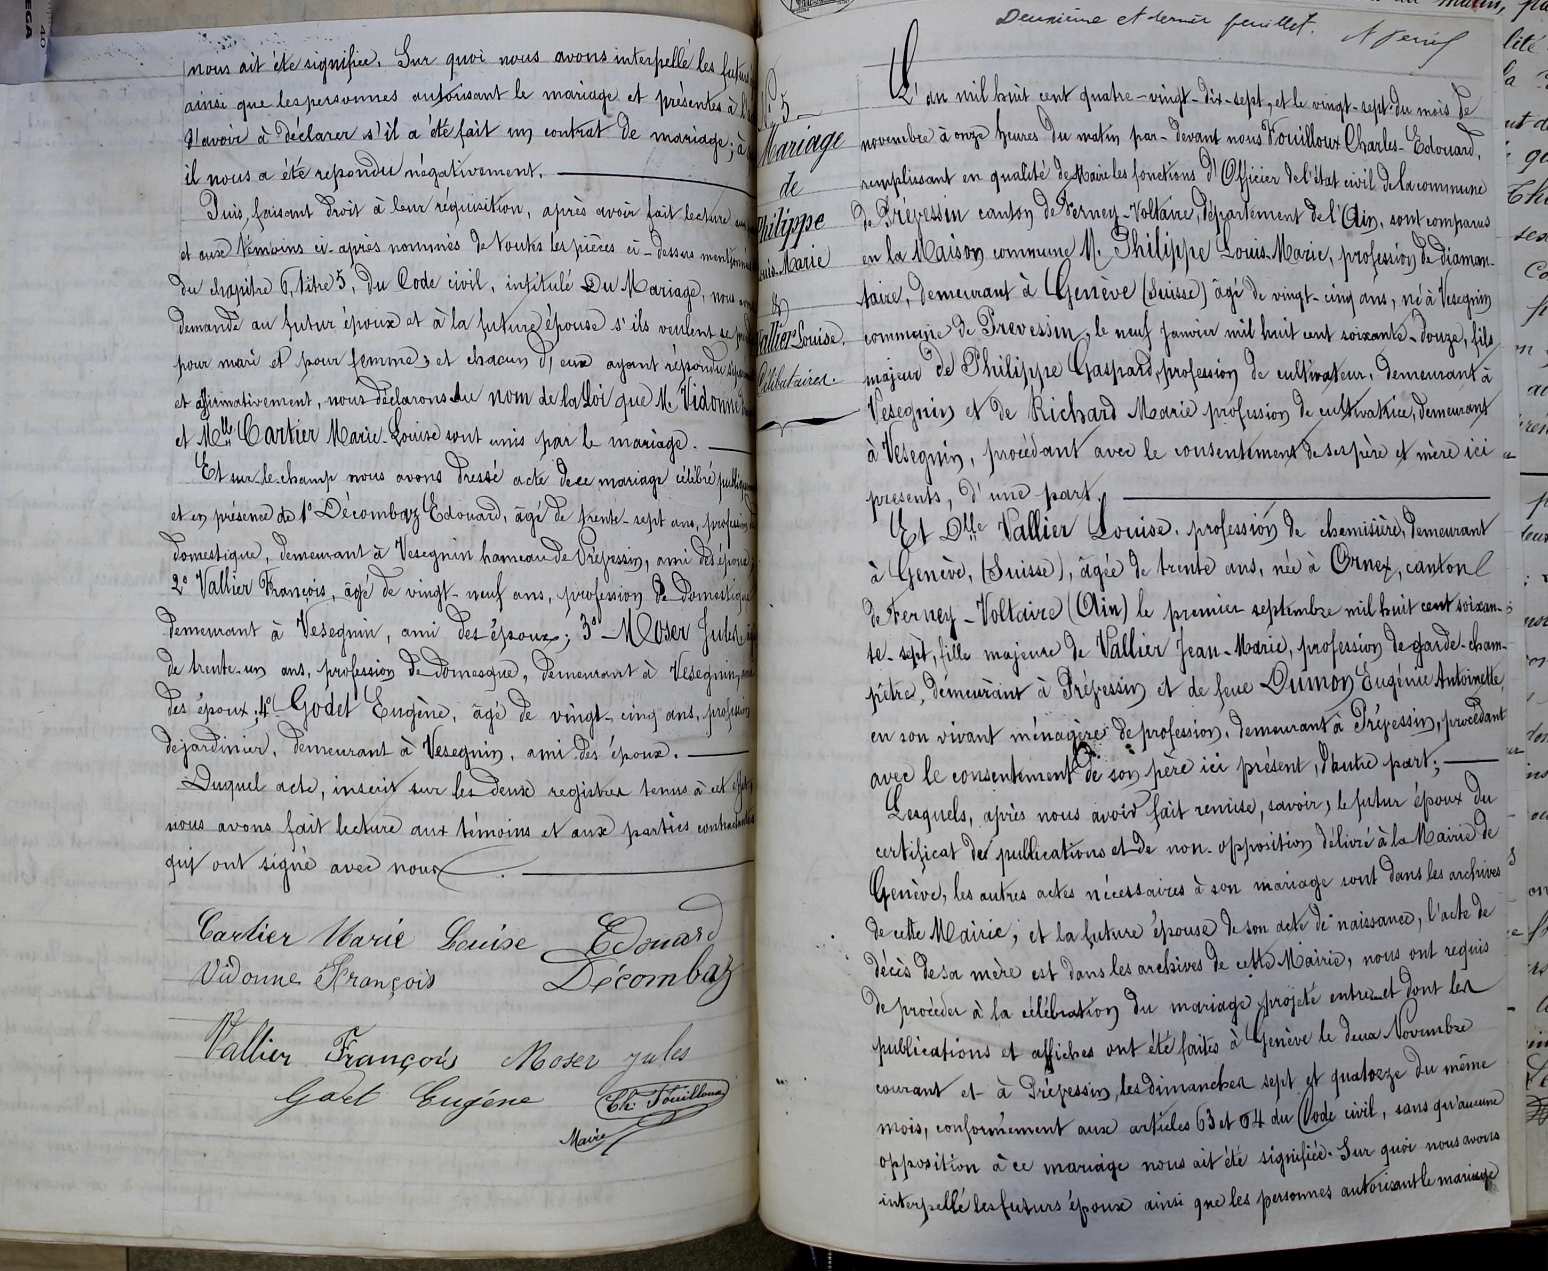 nous ait été signifiée. Sur quoi nous avons interpellé les futurs
ainsi que les personnes autorisant le mariage et présentes à
d'avoir à déclarer s'il a été fait un contrat de mariage; à
il nous a été repondu négativement.
Puis, faisant droit à leur réquisition, après avoir fait lecture
et aux témoins ci-après nommés de toutes les pièces ci-dessus mentionnées
du chapitre 6, titre 5, du Code civil, intitulé Du Mariage, nous avons
demandé au futur époux et à la future épouse s'ils veulent se
pour mari et pour femme, et chacun d'eux ayant répondu
et affirmativement, nous déclarons au nom de la Loi que M. Vidonne
et Mlle Cartier Marie-Louise sont unis par le mariage.
Et sur-le-champ nous avons dressé acte de ce mariage célébré publiquement
et en présence de 1° Décombaz Edouard, âgé de trente-sept ans, profession
domestique, demeurant à Vesegnin hameau de Prévessin, ami des époux
2° Vallier François, âgé de vingt-neuf ans, profession de domestique
demeurant à Vesegnin, ami des époux; 3° Moser Jules
de trente-un ans, profession de domesque, demeurant à Vesegnin,
des époux; 4° Godet Eugène, âgé de vingt-cinq ans, profession
de jardinier, demeurant à Vesegnin, ami des époux.
Duquel acte, inscrit sur les deux registres tenus à cet effet,
nous avons fait lecture aux témoins et aux parties contractantes
qui ont signé avec nous.
Cartier Marie Louise Edouard
Vidonne François Décombaz
Vallier François Moser jules
Godet Eugéne Ch. Fouilloux
Maire
Deuxième et dernier feuillet.
N° 5
Mariage
de
Philippe
Louis-Marie
&
Vallier Louise.
Célibataires.
L'an mil huit cent quatre-vingt-dix-sept, et le vingt-sept du mois de
novembre à onze heures du matin par-devant nous Fouilloux Charles-Edouard,
remplissant en qualité de Maire les fonctions d'Officier de l'état civil de la commune
de Prévessin canton de Ferney-Voltaire, département de l'Ain, sont comparus
en la Maison commune M. Philippe Louis-Marie, profession de diaman-
taire, demeurant à Genève (Suisse) âgé de vingt-cinq ans, né à Vesegnin
commune de Prevessin, le neuf janvier mil huit cent soixante-douze, fils
majeur de Philippe Gaspard, profession de cultivateur, demeurant à
Vesegnin et de Richard Marie profession de cultivatrice, demeurant
à Vesegnin, procédant avec le consentement de ses père et mère ici
presents, d'une part,
Et Dlle Vallier Louise, profession de chemisière, demeurant
à Genève, (Suisse), âgée de trente ans, née à Ornex, canton
de Ferney-Voltaire (Ain) le premier septembre mil huit cent soixan-
te-sept, fille majeure de Vallier Jean-Marie, profession de garde-cham-
pêtre, demeurant à Prévessin et de feue Dumon Eugénie Antoinette,
en son vivant ménagère de profession, demeurant à Prévessin, procédant
avec le consentement de son père ici présent, d'autre part;
Lesquels, après nous avoir fait remise, savoir, le futur époux du
certificat des publications et de non-opposition délivré à la Mairie de
Genève, les autres actes nécessaires à son mariage sont dans les archives
de cette Mairie; et la future épouse de son acte de naissance, l'acte de
décès de sa mère est dans les archives de cette Mairie, nous ont requis
de procéder à la célébration du mariage projeté entre et dont les
publications et affiches ont été faites à Genève le deux Novembre
courant et à Prévessin, les dimanches sept et quatorze du même
mois, conformément aux articles 63 et 64 du Code civil, sans qu'aucune
opposition à ce mariage nous ait été signifiée. Sur quoi nous avons
interpellé les futurs époux ainsi que les personnes autorisant le mariage